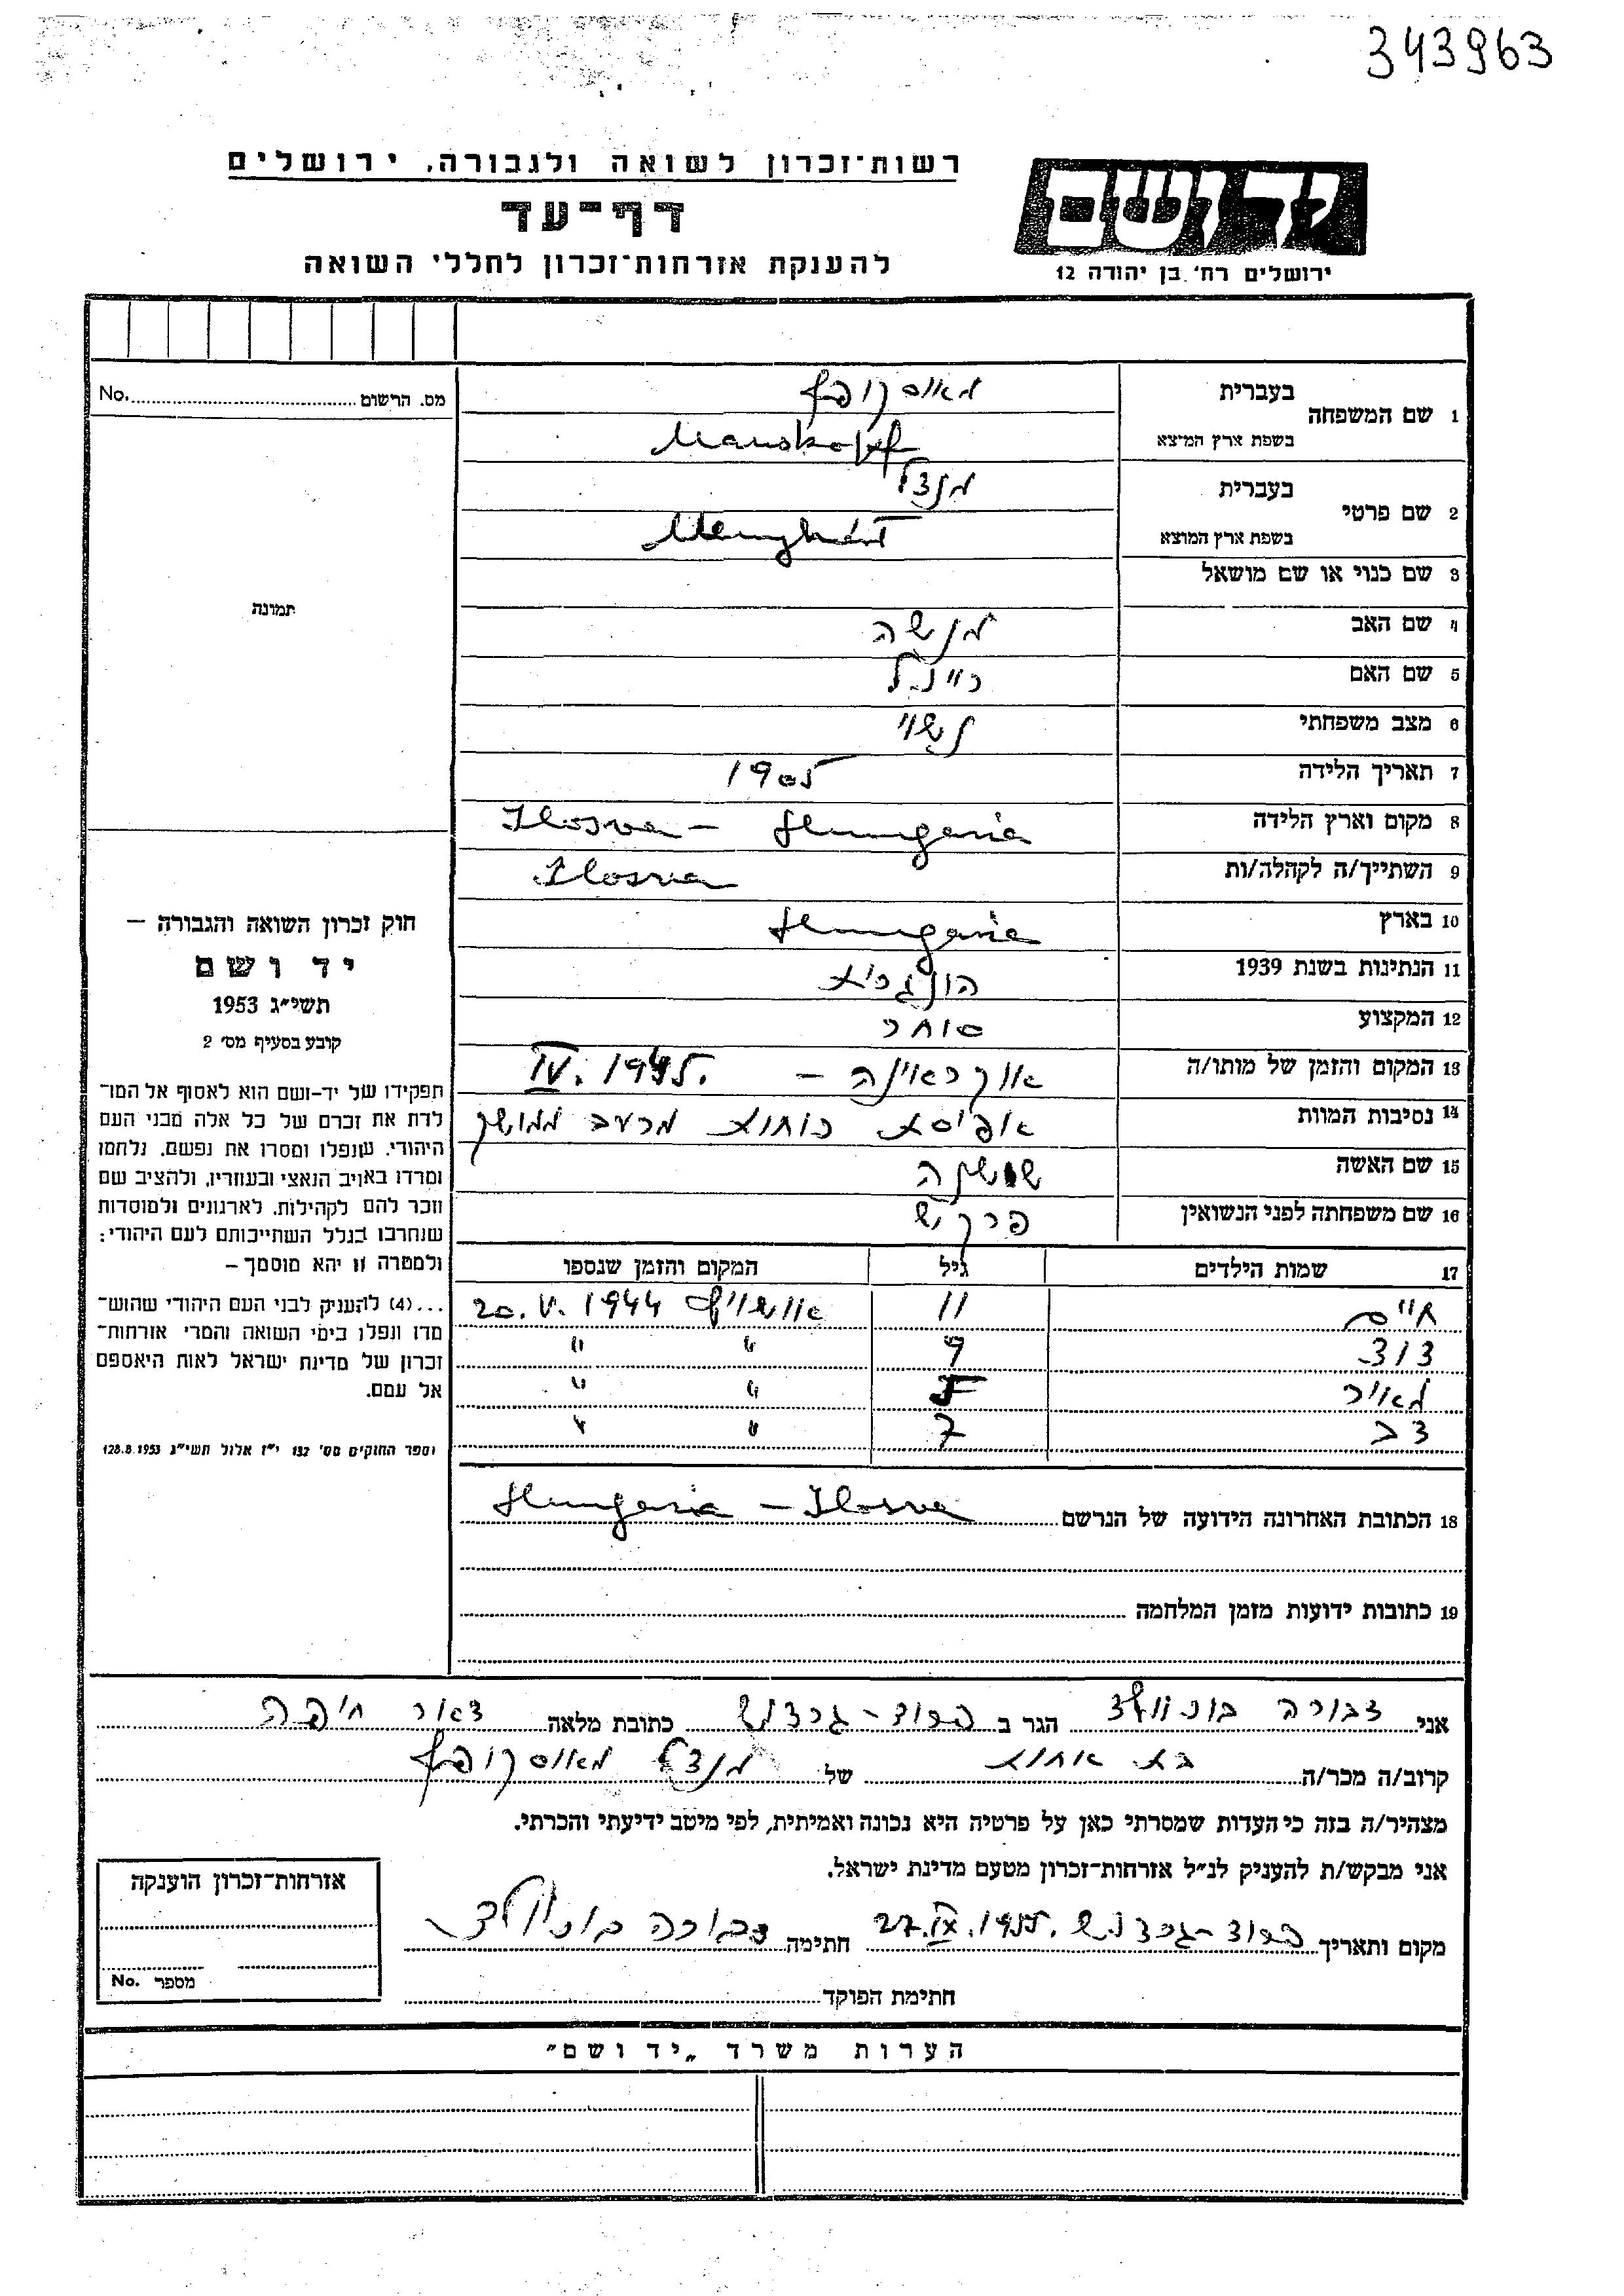 343963
רשות־זכרון לשואה ולגבורה, ירושלים
דף־עד
להענקת אזרחות־זכרון לחללי השואה
יד ושם
ירושלים רח' בן יהודה 12
מס. הרשום No.
תמונה
1 שם המשפחה בעברית מאוסקופף
בשפת ארץ המוצא Mauskopf
2 שם פרטי בעברית מנדל
בשפת ארץ המוצא Menyhért
3 שם כנוי או שם מושאל
4 שם האב מנשה
5 שם האם ריינ.ל
6 מצב משפחתי נשוי
7 תאריך הלידה 1905
8 מקום וארץ הלידה Ilosva – Hungaria
9 השתייך/ה לקהלה/ות Ilosva
10 בארץ Hungaria
11 הנתינות בשנת 1939 הונגרית
12 המקצוע סוחר
13 המקום והזמן של מותו/ה אוקראינה – IV. 1945.
14 נסיבות המוות אפיסת כוחות מרעב ממושך
15 שם האשה שושנה
16 שם משפחתה לפני הנשואין
17 שמות הילדים גיל המקום והזמן שנספו
חיים 11 אושויץ 20.V. 1944
דוד 9 " "
מאיר 5 " "
דב 7 " "
18 הכתובת האחרונה הידועה של הנרשם Hungaria – Ilosva
19 כתובות ידועות מזמן המלחמה
חוק זכרון השואה והגבורה –
יד ושם
תשי״ג 1953
קובע בסעיף מס' 2
תפקידו של יד-ושם הוא לאסוף אל המו־
לדת את זכרם של כל אלה מבני העם
היהודי, שנפלו ומסרו את נפשם, נלחמו
ומרדו באויב הנאצי ובעוזריו, ולהציב שם
וזכר להם לקהילות, לארגונים ולמוסדות
שנחרבו בגלל השתייכותם לעם היהודי;
ולמטרה זו יהא מוסמך –
...(4) להעניק לבני העם היהודי שהוש־
מדו ונפלו בימי השואה והמרי אזרחות־
זכרון של מדינת ישראל לאות היאספם
אל עמם.
וספר החוקים מס' 132 י״ז אלול תשי״ג 28.8.1953)
אני דבורה הגר ב פרוד-גרדוש כתובת מלאה דאור חיפה
קרוב/ה מכר/ה בת אחות של מנדל מאוסקופף
מצהיר/ה בזה כי העדות שמסרתי כאן על פרטיה היא נכונה ואמיתית, לפי מיטב ידיעתי והכרתי.
אני מבקש/ת להעניק לנ״ל אזרחות־זכרון מטעם מדינת ישראל.
מקום ותאריך פרוד-גרדוש 27.IX.1955. חתימה דבורה
חתימת הפוקד
אזרחות־זכרון הוענקה
מספר No.
הערות משרד „יד ושם"